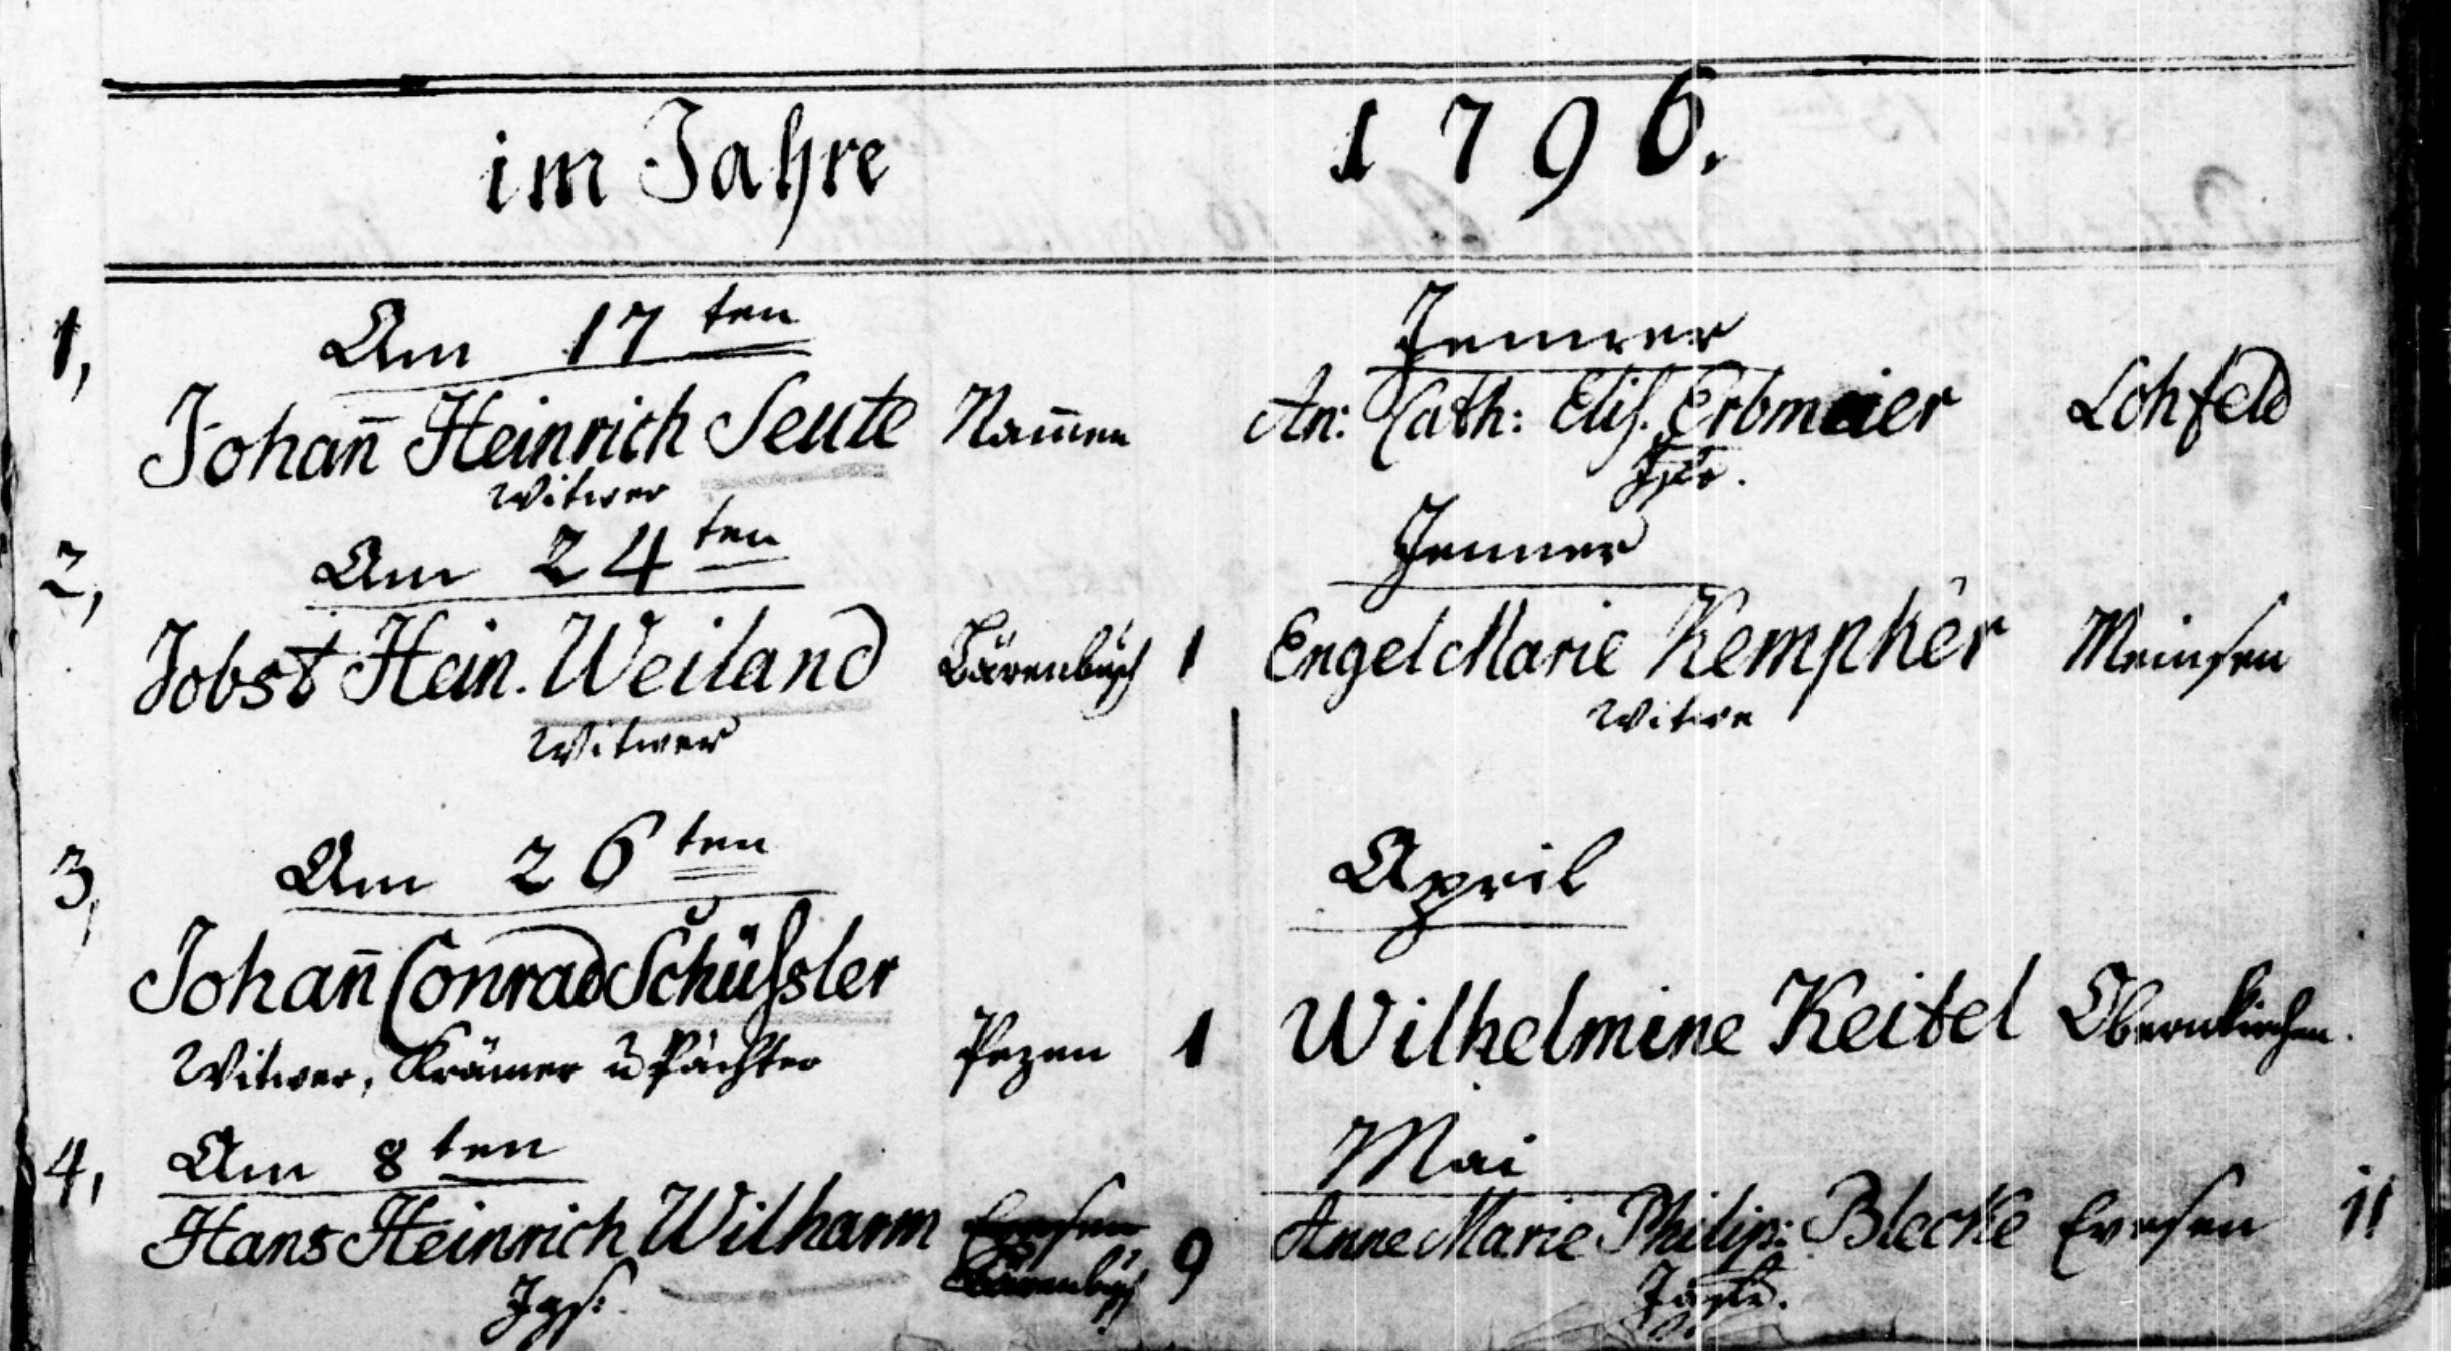 im Jahre 1796.
1, Am 17ten Jenner
Johan̄ Heinrich Seute Nam̄en An: Cath: Elis. Erbmeier Lohfeld
Witwer
2, Am 24ten Jenner
Jobst Hein. Weiland Bärenbusch 1 Engel Marie Kempker Meinsen
Witwer Witwe
3, Am 26ten April
Johan̄ Conrad Schüssler
Witwer, Krämer u Pächter Pezen 1 Wilhelmine Keitel Obernkirchen.
4, Am 8ten Mai
Hans Heinrich Wilharm Evesen Bärenbusch 9 Anne Marie Philip: Blecke Evesen 11
Jgs: